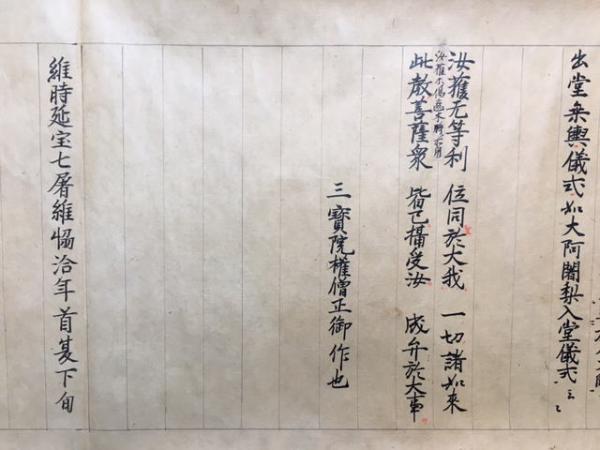 出堂乗輿儀式如大阿闍梨入堂儀式云々
汝獲无等利 位同於大我 一切諸如來
此教菩薩衆 皆已攝受汝 成弁於大事
三寳院權僧正御作也
維時延宝七屠維協洽年首夏下旬